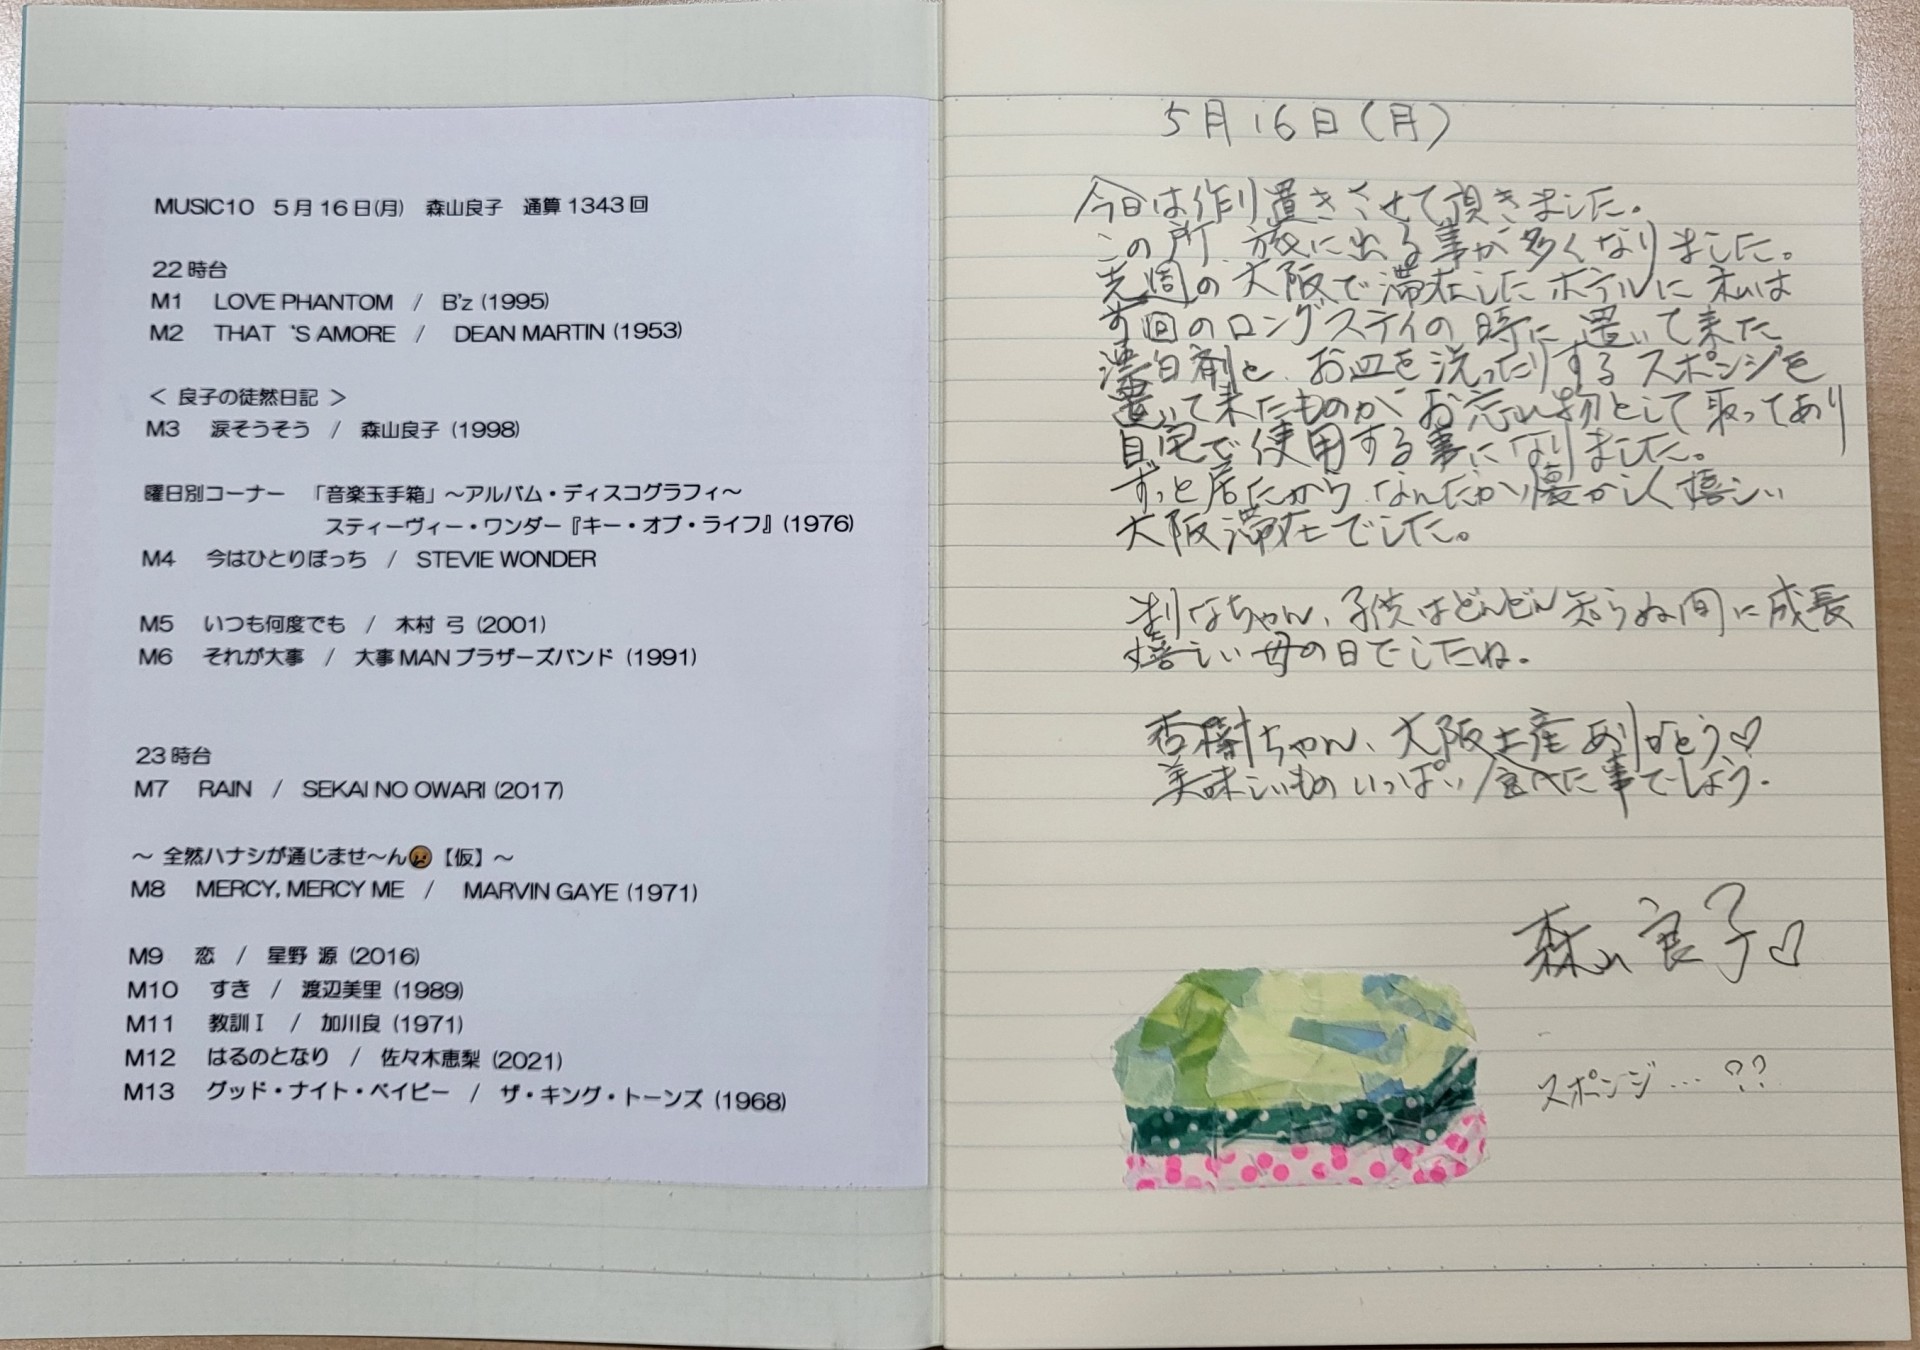 MUSIC10 5月16日(月) 森山良子 通算1343回
22時台
M1 LOVE PHANTOM / B'z (1995)
M2 THAT 'S AMORE / DEAN MARTIN (1953)
< 良子の徒然日記 >
M3 涙そうそう / 森山良子 (1998)
曜日別コーナー 「音楽玉手箱」～アルバム・ディスコグラフィ～
スティーヴィー・ワンダー『キー・オブ・ライフ』(1976)
M4 今はひとりぼっち / STEVIE WONDER
M5 いつも何度でも / 木村 弓 (2001)
M6 それが大事 / 大事MANブラザーズバンド (1991)
23時台
M7 RAIN / SEKAI NO OWARI (2017)
～ 全然ハナシが通じませ～ん😠【仮】～
M8 MERCY, MERCY ME / MARVIN GAYE (1971)
M9 恋 / 星野 源 (2016)
M10 すき / 渡辺美里 (1989)
M11 教訓Ⅰ / 加川良 (1971)
M12 はるのとなり / 佐々木恵梨 (2021)
M13 グッド・ナイト・ベイビー / ザ・キング・トーンズ (1968)
5月16日(月)
今日は作り置きさせて頂きました。
この所、旅に出る事が多くなりました。
先週の大阪で滞在したホテルに私は
回のロングステイの時に置いて来た
漂白剤と、お皿を洗ったりするスポンジを
置いて来たものがお忘れ物として取ってあり
自宅で使用する事になりました。
ずっと居たから、なんだか懐かしく嬉しい
大阪滞在でした。
ちゃん、子供はどんどん知らぬ間に成長
嬉しい母の日でしたね。
杏樹ちゃん、大阪土産ありがとう♡
美味しいものいっぱい食べた事でしょう。
森山良子♡
スポンジ…??